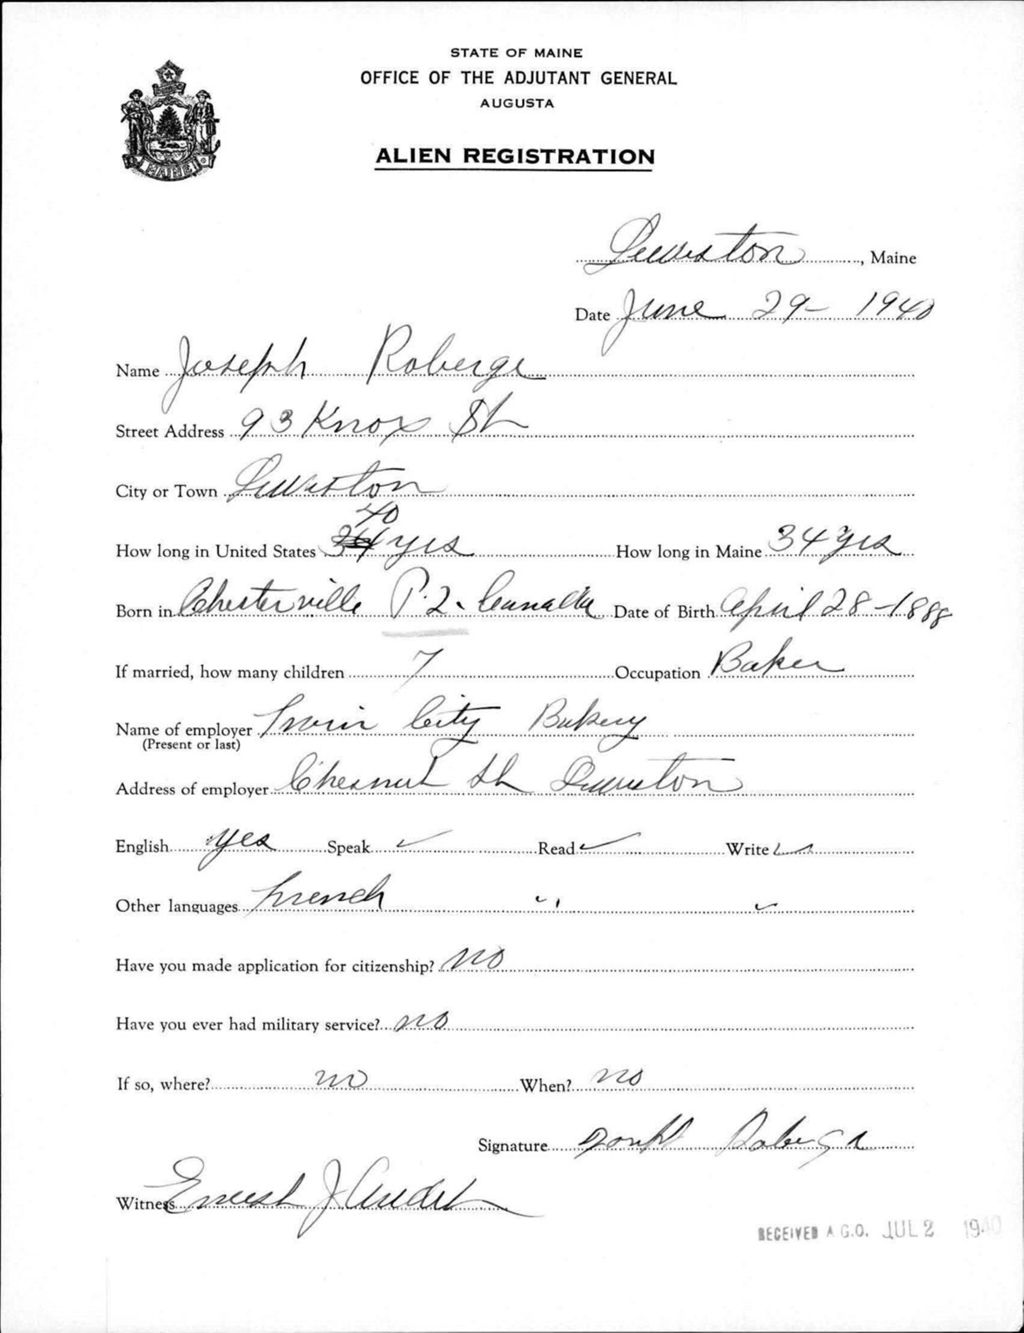 STATE OF MAINE
OFFICE OF THE ADJUTANT GENERAL
AUGUSTA
ALIEN REGISTRATION
MAINE
Lewiston, Maine
Date June 29 - 1940
Name Joseph Roberge
Street Address 93 Knox St
City or Town Lewiston
40
How long in United States 34 yrs How long in Maine 34 yrs
Born in Chesterville P.Q. Canada Date of Birth April 28 - 1888
If married, how many children 7 Occupation Baker
Name of employer Twin City Bakery
(Present or last)
Address of employer Chesnut St Lewiston
English yes Speak ✓ Read ✓ Write ✓
Other languages French " ✓
Have you made application for citizenship? no
Have you ever had military service? no
If so, where? no When? no
Signature Joseph Roberge
Witness Ernest J Audet
RECEIVED A.G.O. JUL 2 1940